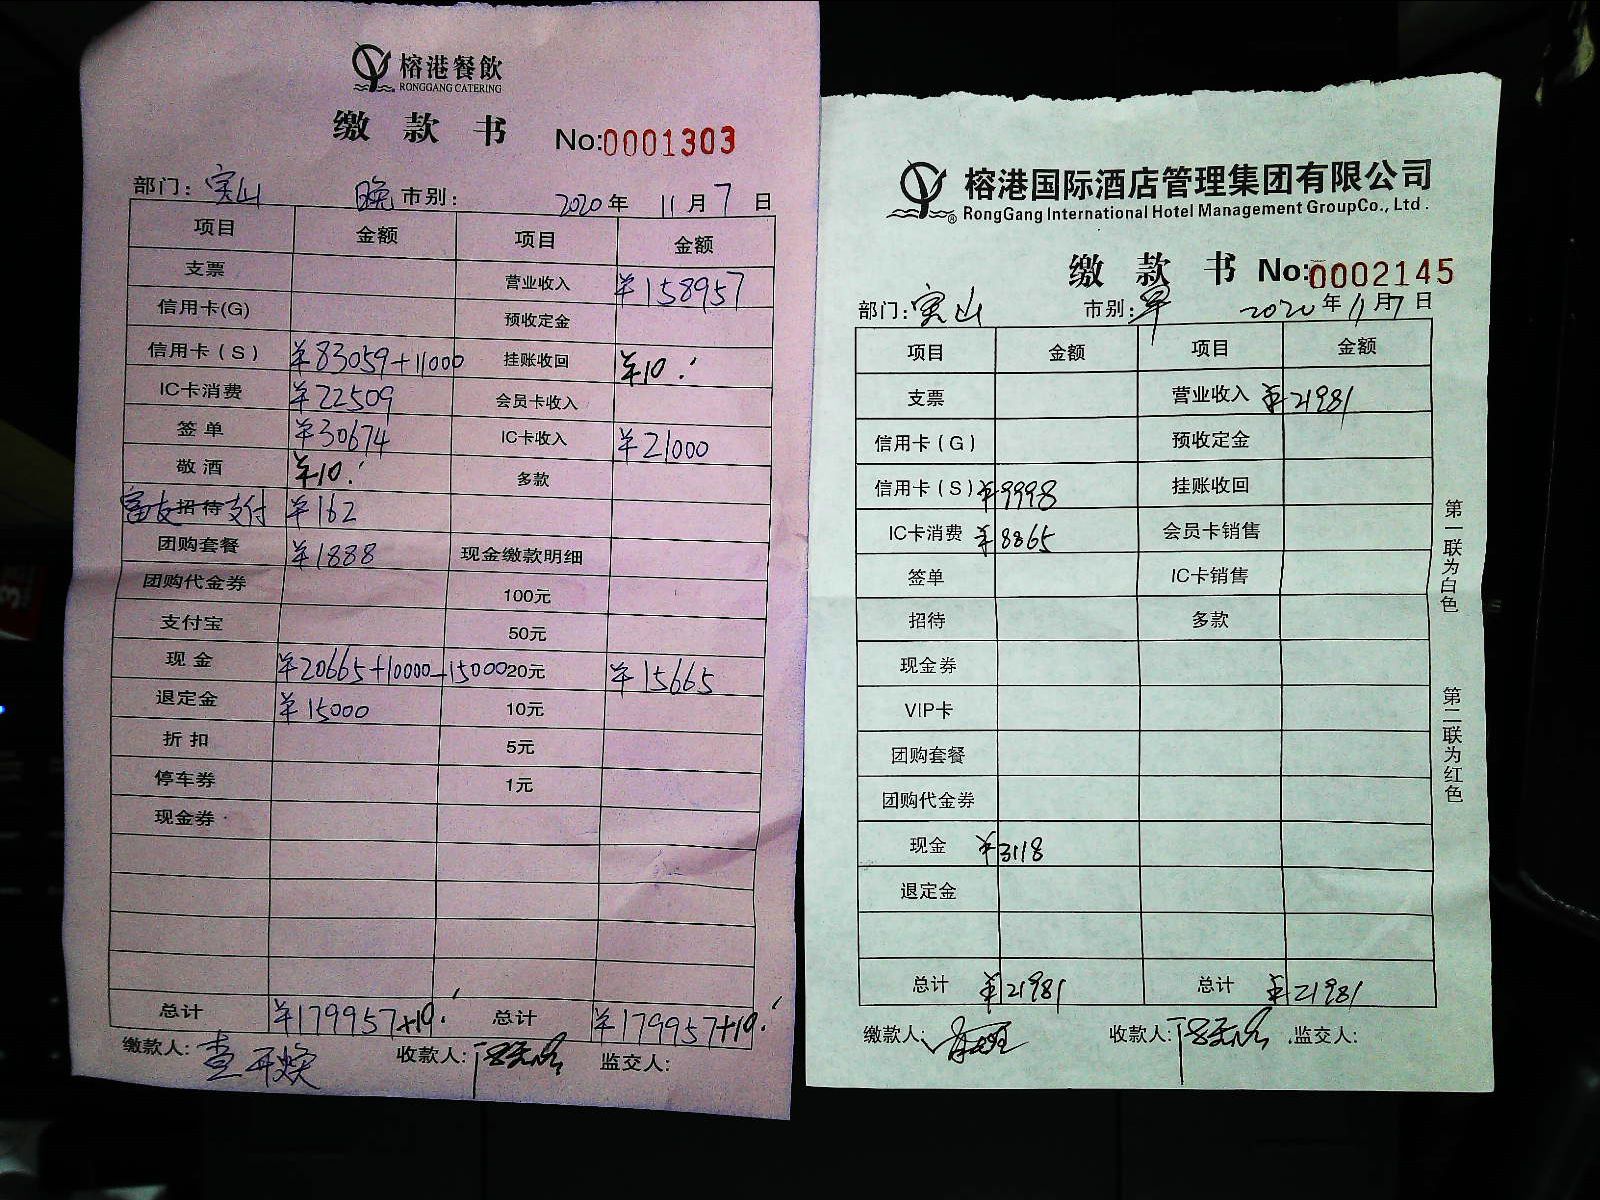 榕港餐飲
RONGGANG CATERING
缴款书 No:0001303
部门: 宝山 晚市别: 2020年 11月7日
项目 金额 项目 金额
支票 营业收入 ¥158957
信用卡(G) 预收定金
信用卡(S) ¥83059+11000 挂账收回 ¥10.
IC卡消费 ¥22509 会员卡收入
签单 ¥30674 IC卡收入 ¥21000
敬酒 ¥10. 多款
富友招待支付 ¥162
团购套餐 ¥1888 现金缴款明细
团购代金券 100元
支付宝 50元
现金 ¥20665+10000-15000 20元 ¥15665
退定金 ¥15000 10元
折扣 5元
停车券 1元
现金券
总计 ¥179957+10. 总计 ¥179957+10.
缴款人: 收款人: 监交人:
榕港国际酒店管理集团有限公司
RongGang International Hotel Management GroupCo., Ltd.
缴款书 No:0002145
部门: 宝山 市别: 早 2020年11月7日
项目 金额 项目 金额
支票 营业收入 ¥21981
信用卡(G) 预收定金
信用卡(S) ¥9998 挂账收回
IC卡消费 ¥8865 会员卡销售
签单 IC卡销售
招待 多款
现金券
VIP卡
团购套餐
团购代金券
现金 ¥3118
退定金
总计 ¥21981 总计 ¥21981
缴款人: 收款人: 监交人:
第一联为白色
第二联为红色